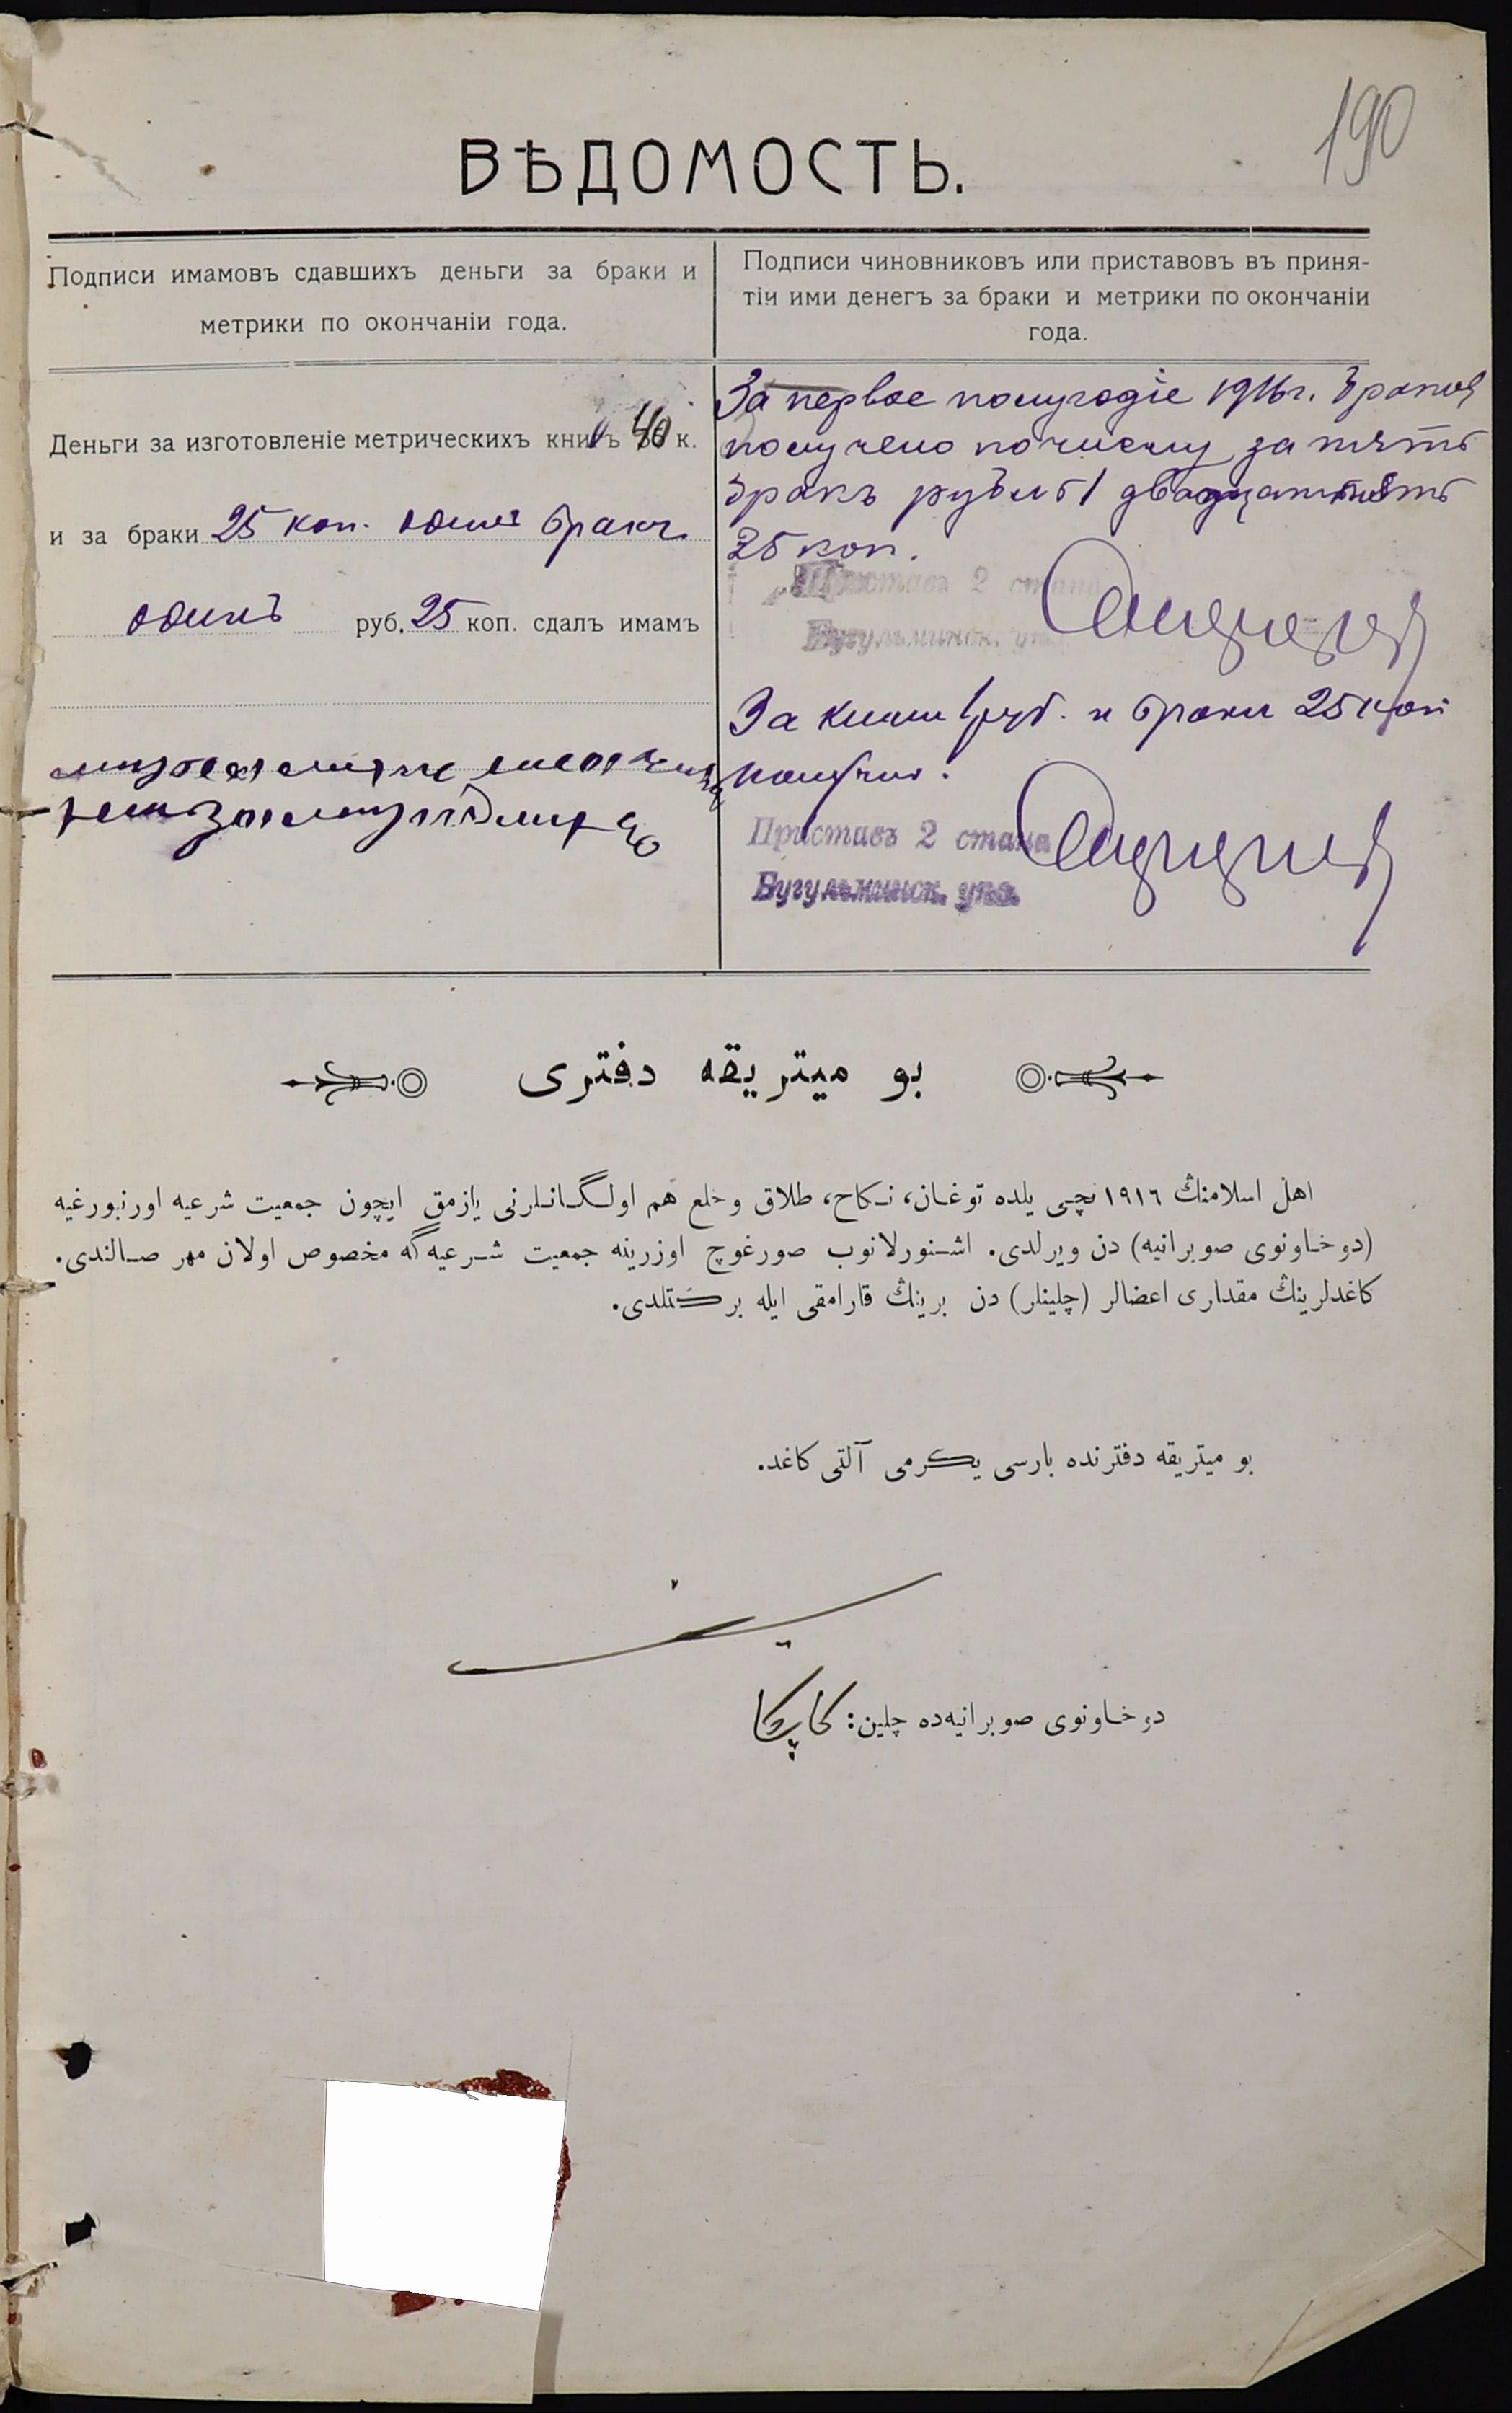 190
ВѢДОМОСТЬ.
Подписи имамовъ сдавшихъ деньги за браки и
метрики по окончаніи года.
Подписи чиновниковъ или приставовъ въ приня-
тіи ими денегъ за браки и метрики по окончаніи
года.
Деньги за изготовленіе метрическихъ книгъ 40 к.
и за браки 25 коп. одинъ бракъ
одинъ руб. 25 коп. сдалъ имамъ
За первое полугодіе 1916 г.
получено по числу за пять
бракъ рубль 1 двадцать пять
25 коп.
Приставъ 2 стана
Бугульминск. у
За книги 1 руб. и браки 25 коп
получилъ.
Приставъ 2 стана
Бугульминск. уѣз.
بو ميتريقه دفترى
اهل اسلامنڭ ١٩١٦ نچى يلده توغان، نكاح، طلاق وخلع هم اولگانلرنى يازمق ايچون جمعيت شرعيه اورنبورغيه
(دوخاونوى صوبرانيه) دن ويرلدى. اشنورلانوب صورغوچ اوزرينه جمعيت شرعيه گه مخصوص اولان مهر صالندى.
كاغدلرينڭ مقدارى اعضالر (چلينلر) دن برينڭ قارامقى ايله بركتلدى.
بو ميتريقه دفترنده بارسى يكرمى آلتى كاغد.
دوخاونوى صوبرانيه‌ده چلين: